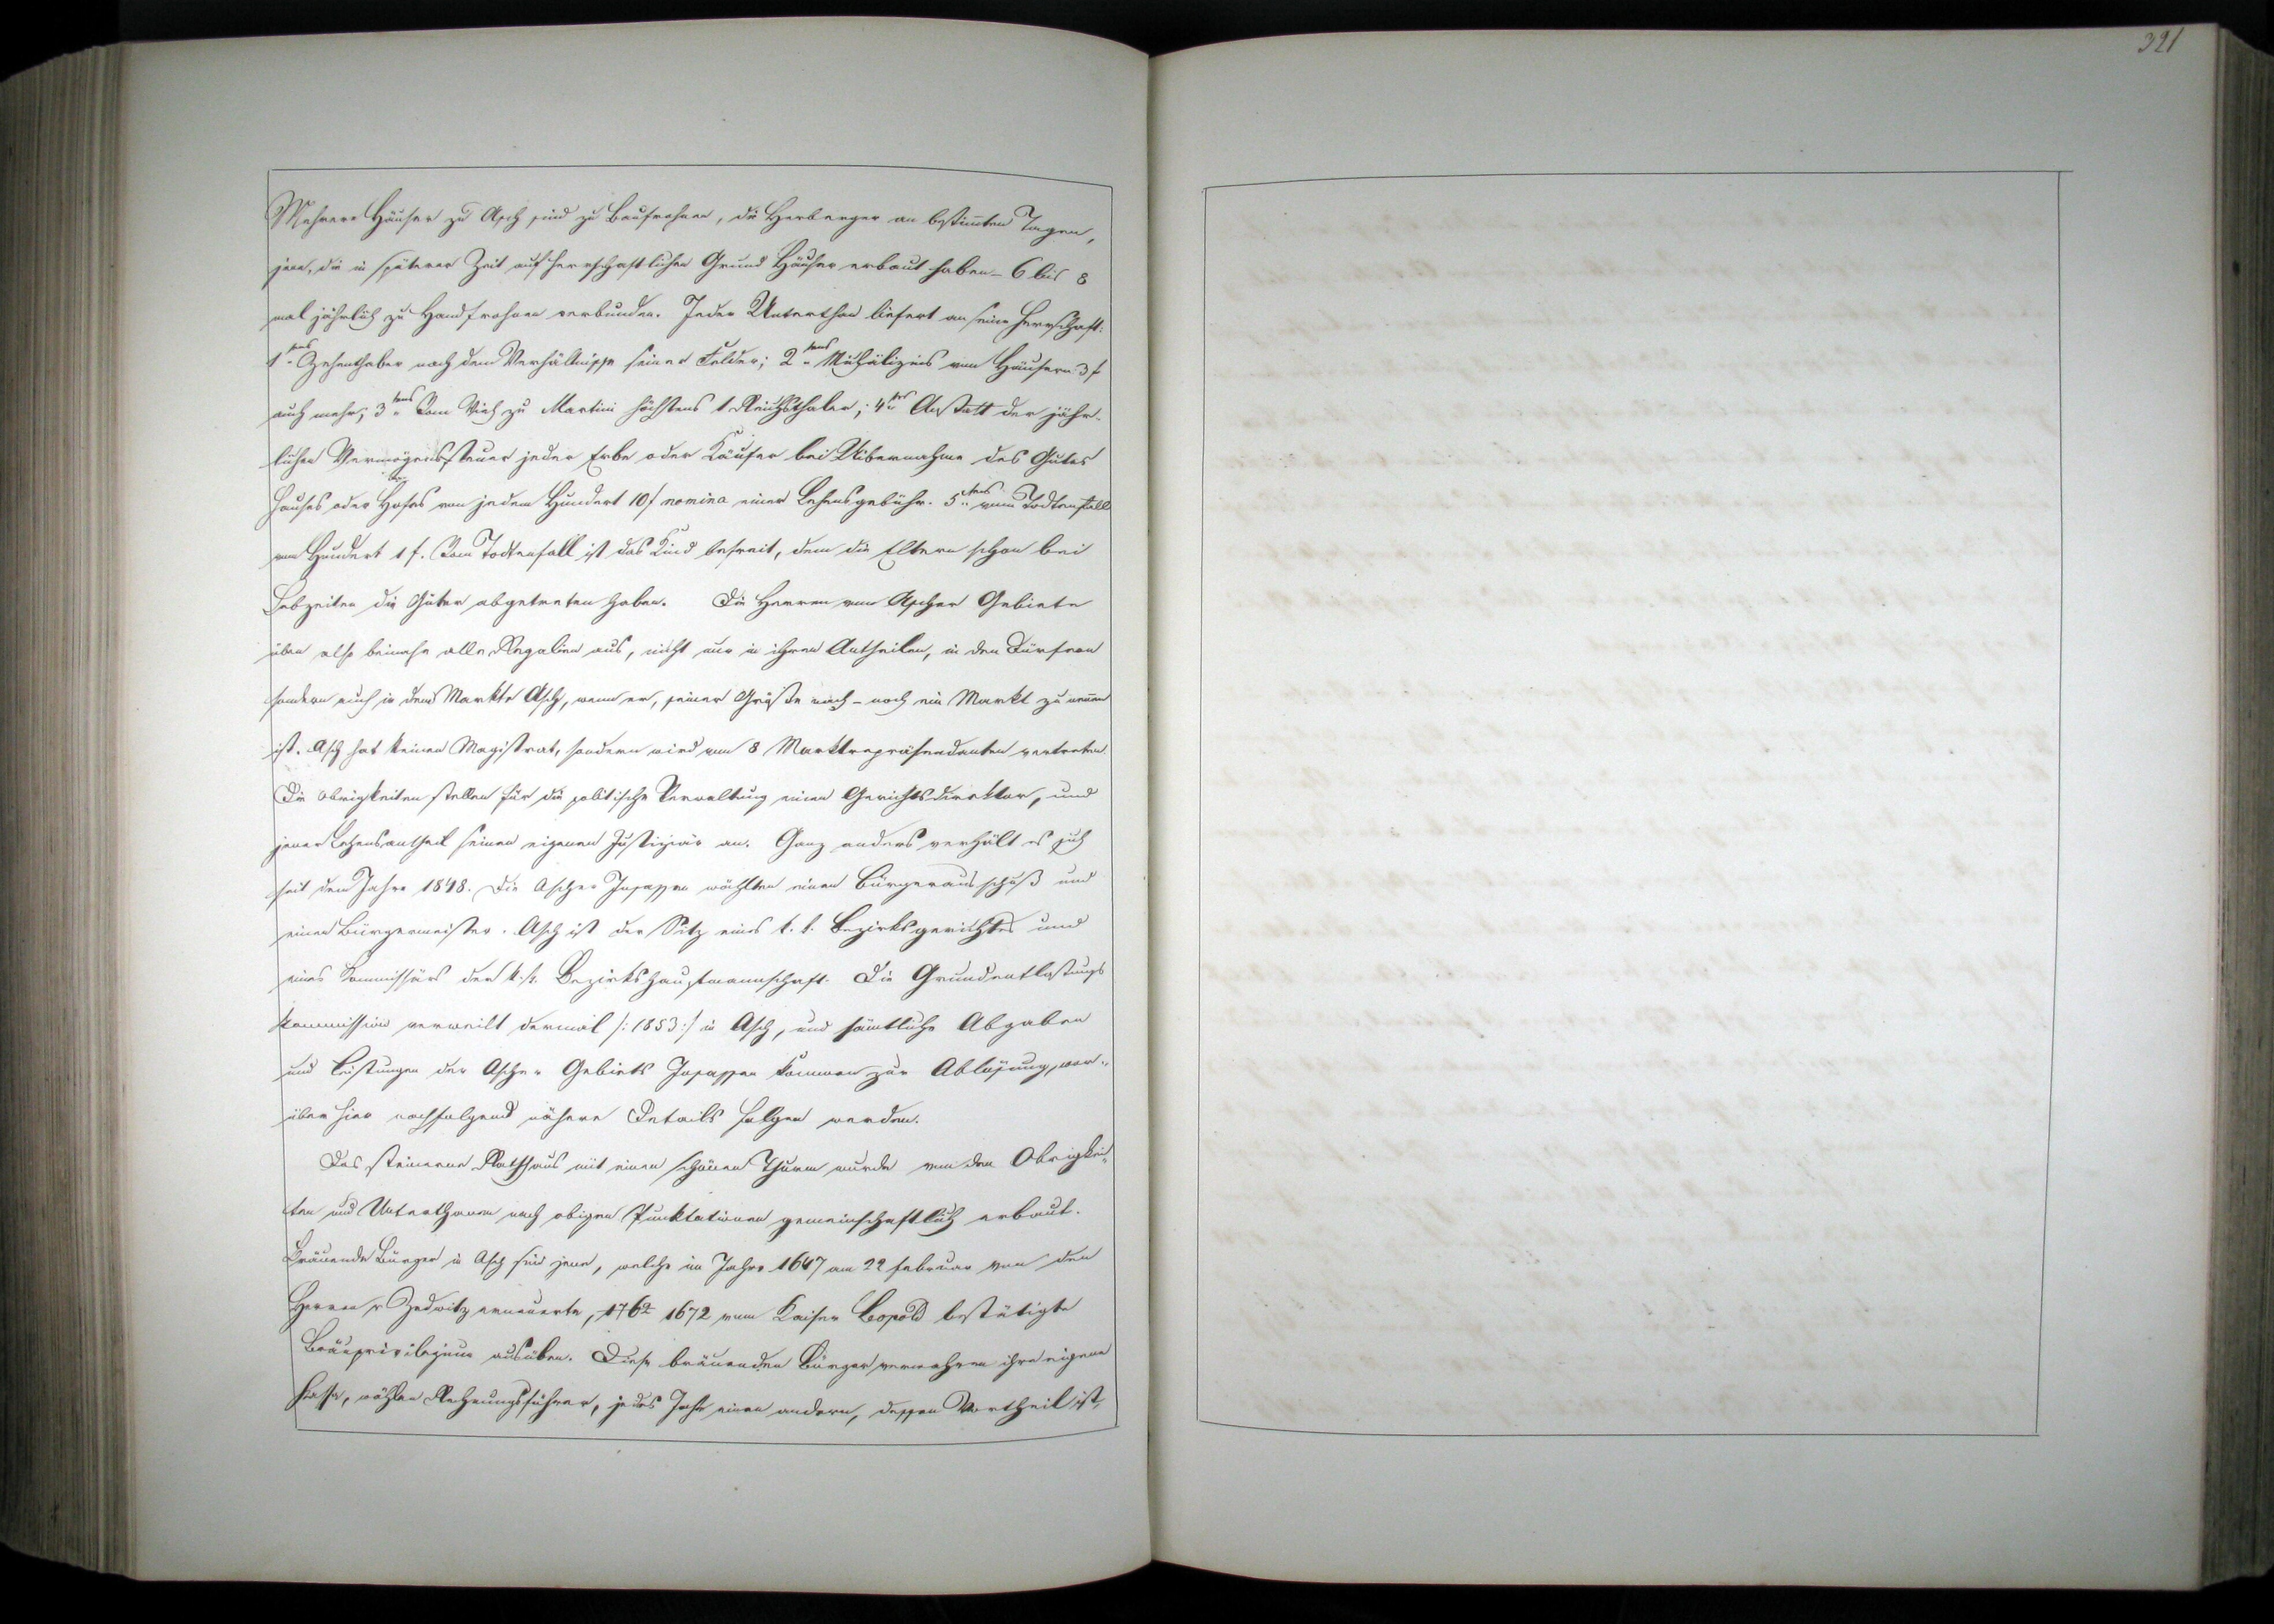 321
Mehrere Häuser zu Asch sind zu Baufrohnen, die Herberger an bestim̅ten Tagen,
jene, die in späterer Zeit auf herrschaftlichen Grund Häuser erbaut haben – 6 bis 8
mal jährlich zu Handfrohnen verbunden. Jeder Unterthan liefert an seine Herrschaft:
1tens Zehenthaber nach dem Verhältnisse seiner Felder; 2tens von Häusern 3 f
auch mehr; 3tens Vom Vieh zu Martini höchstens 1 Reichsthaler; 4tens Anstatt der jähr-
lichen Vermögenssteuer jeder Erbe oder Käufer bei Uibernahme des Gutes
Hauses oder Hofes von jedem Hundert 10 f nomina einer Lehensgebühr. 5tens vom Todtenfall
vom Hundert 1 f. Vom Todtenfall ist das Kind befreit, dem die Eltern schon bei
Lebzeiten die Güter abgetreten haben. Die Herren vom Ascher Gebiete
üben also beinahe alle Regalien aus, nicht nur in ihren Antheilen, in den Dörfern
sondern auch in dem Markte Asch, wenn er, seiner Größe nach – noch ein Markt zu nen̅en
ist. Asch hat keinen Magistrat, sondern wird von 8 Marktrepräsendanten vertreten
Die Obrigkeiten stellen für die politische Verwaltung einen Gerichtsdirektor, und
jener Lehensantheil seinen eigenen Justiziär an. Ganz anders verhält es sich
seit dem Jahre 1848. Die Ascher Insassen wählten einen Bürgerausschuß und
einen Bürgermeister. Asch ist der Sitz eines k. k. Bezirksgerichtes und
eines Kommissärs der k. k. Bezirkshauptmannschaft. Die Grundentlastungs
kommission verweilt dermal /: 1853 :/ in Asch, und sämtliche Abgaben
und Leistungen der Ascher Gebiets Insassen kommen zur Ablösung, wor-
über hier nachfolgend nähere Details folgen werden.
Das steinerne Rathhaus mit einen schönen Thurm wurde von den Obrigkei-
ten und Unterthanen nach obigen Punktationen gemeinschaftlich erbaut.
Bräuende Bürger in Asch sind jene, welche im Jahre 1647 am 22 Februar von den
Herren v Zedwitz erneuerte, 1762 1672 vom Kaiser Leopold bestätigte
Bräuprivilegium ausüben. Diese bräuenden Bürger verwahren ihre eigene
Kasse, wählen Rechnungsführer, jedes Jahr einen andern, dessen Vortheil ist,